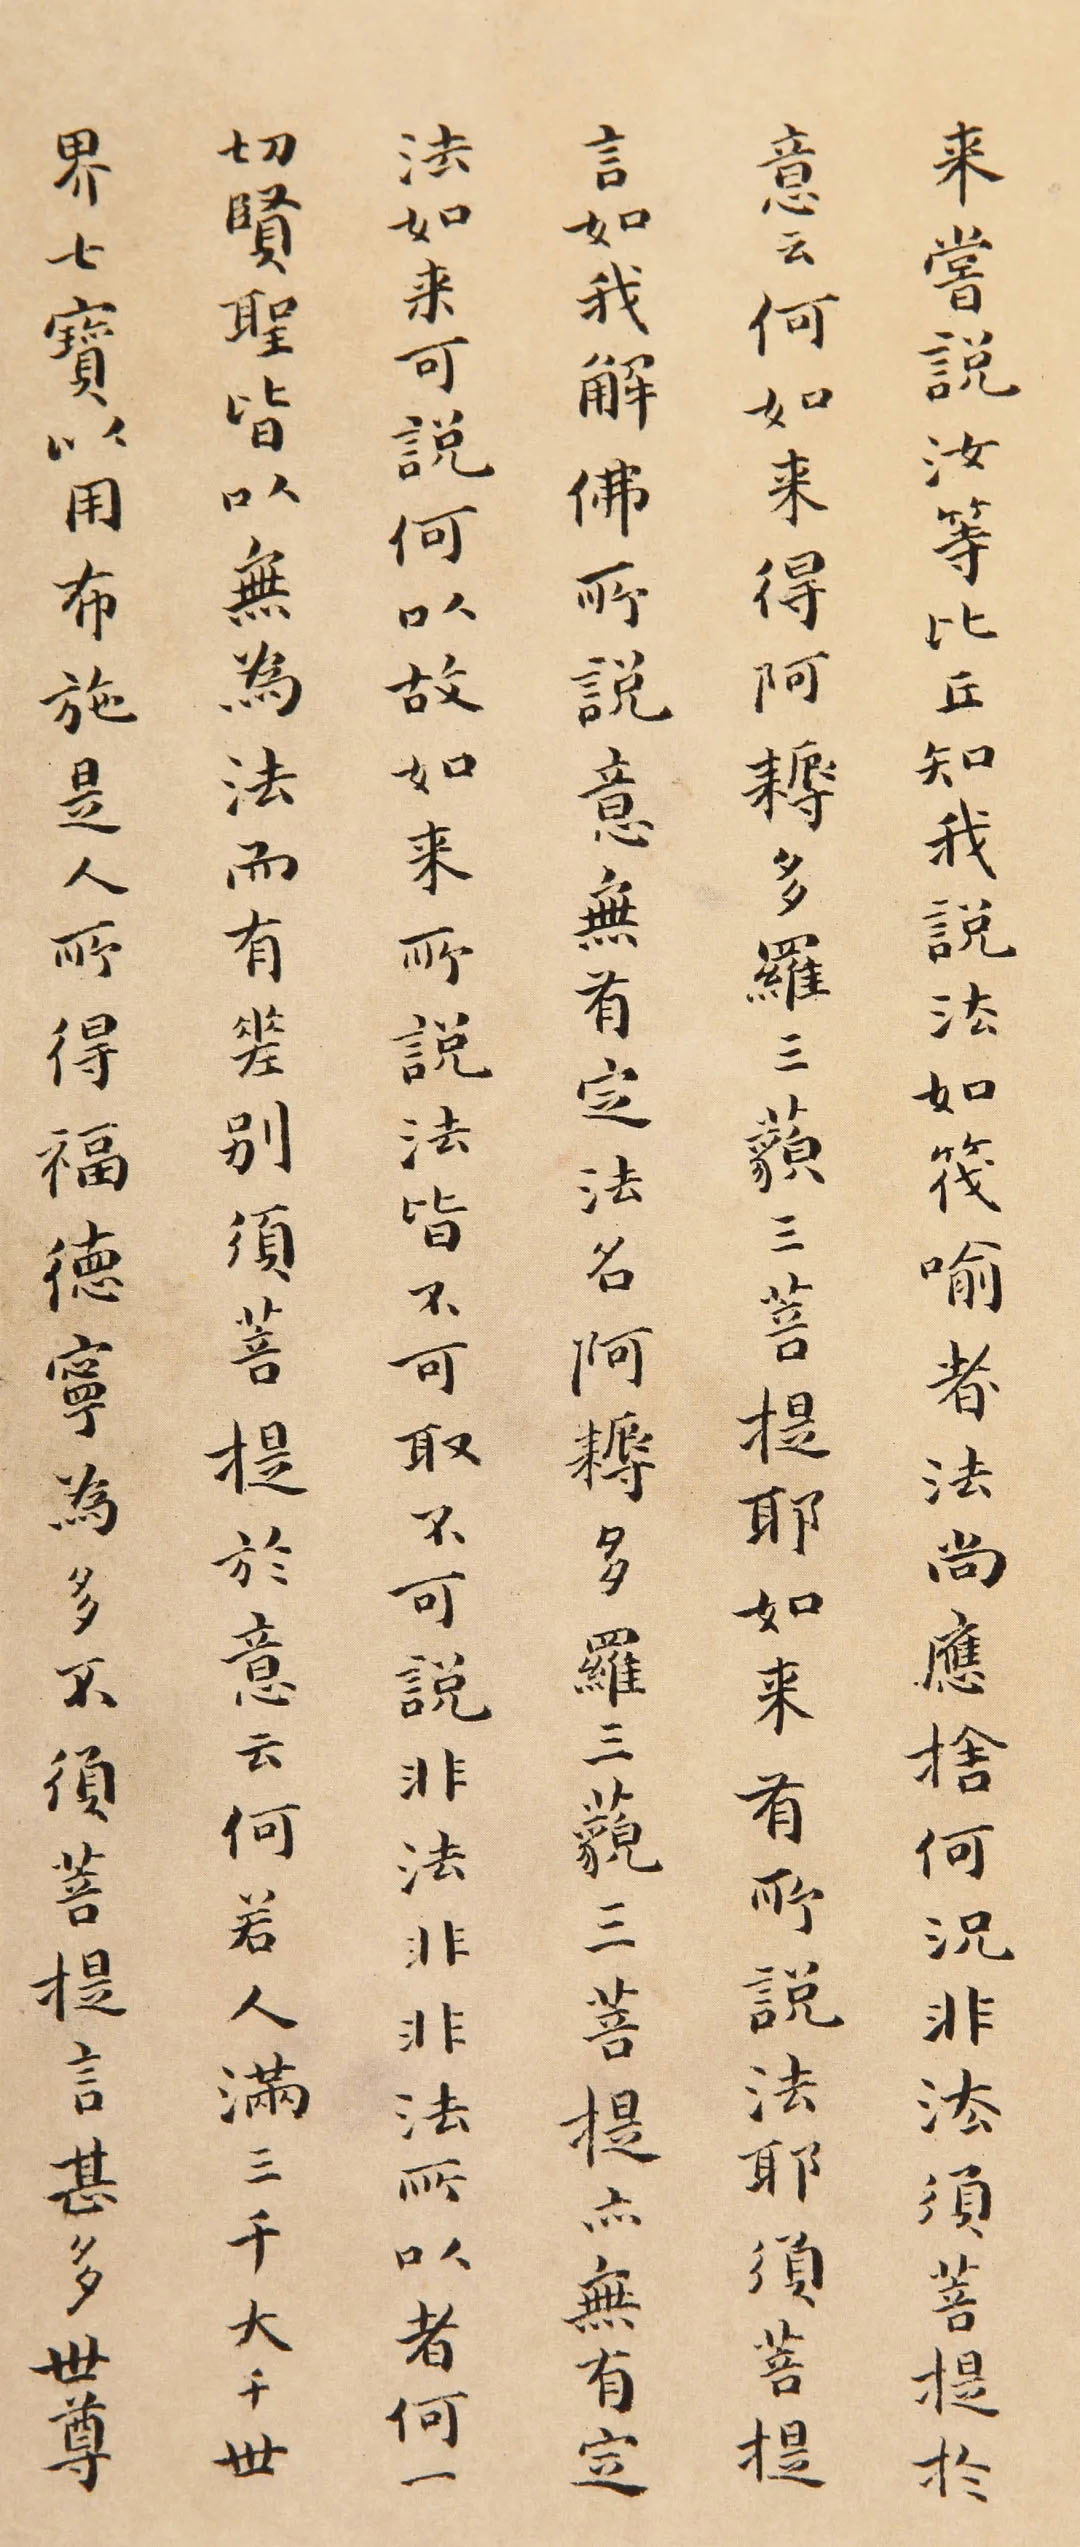 来嘗説汝等比丘知我説法如筏喻者法尚應捨何況非法須菩提於
意云何如来得阿耨多羅三藐三菩提耶如来有所説法耶須菩提
言如我解佛所説意無有定法名阿耨多羅三藐三菩提亦無有定
法如来可説何以故如来所説法皆不可取不可説非法非非法所以者何一
切賢聖皆以無為法而有差别須菩提於意云何若人滿三千大千世
界七寶以用布施是人所得福德寧為多不須菩提言甚多世尊